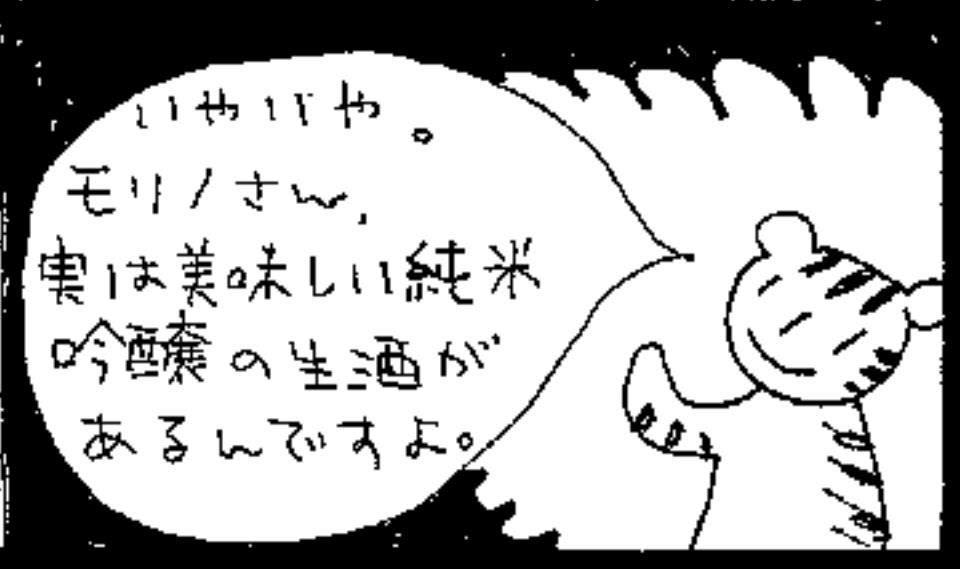 いやいや。
モリノさん、
実は美味しい純米
吟醸の生酒が
あるんですよ。